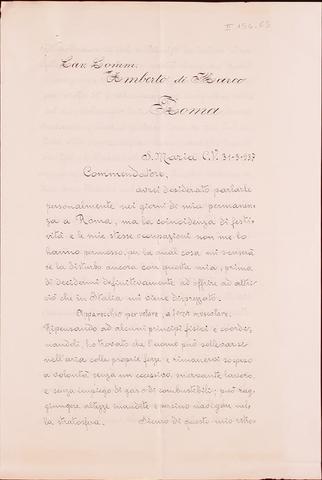 II 156.63
Cav. Comm.
Umberto di Marco
Roma
S. Maria C. V. 31-3-937
Commendatore,
avrei desiderato parlarle
personalmente nei giorni di mia permanen-
za a Roma, ma la coincidenza di festi-
vità e le mie stesse occupazioni non me lo
hanno permesso, per la qual cosa mi scuserà
se la disturbo ancora con questa mia, prima
di decidermi definitivamente ad offrire ad altri
ciò che in Italia mi viene disprezzato.
Apparecchio per volare, a forza muscolare.
Ripensando ad alcuni principi fisici e coordi-
nandoli, ho trovato che l'uomo può sollevarsi
nell'aria colle proprie forze e rimanervi sospeso
a volontà senza un eccessivo, snervante lavoro,
e senza impiego di gas o di combustibili; può rag-
giungere altezze inaudite e persino navigare nel-
la stratosfera. Sicuro di questo mio